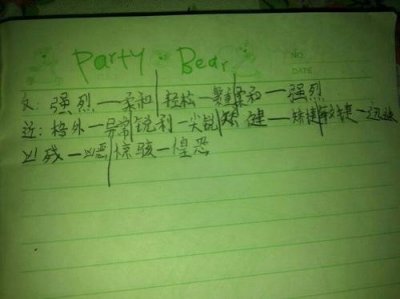 Party Bear
NO.
DATE
反:强烈—柔和 轻松— 柔和—强烈
近:格外—异常 锐利—尖锐 矫健—矫捷 敏捷—迅速
凶残—凶恶 惊骇—惶恐